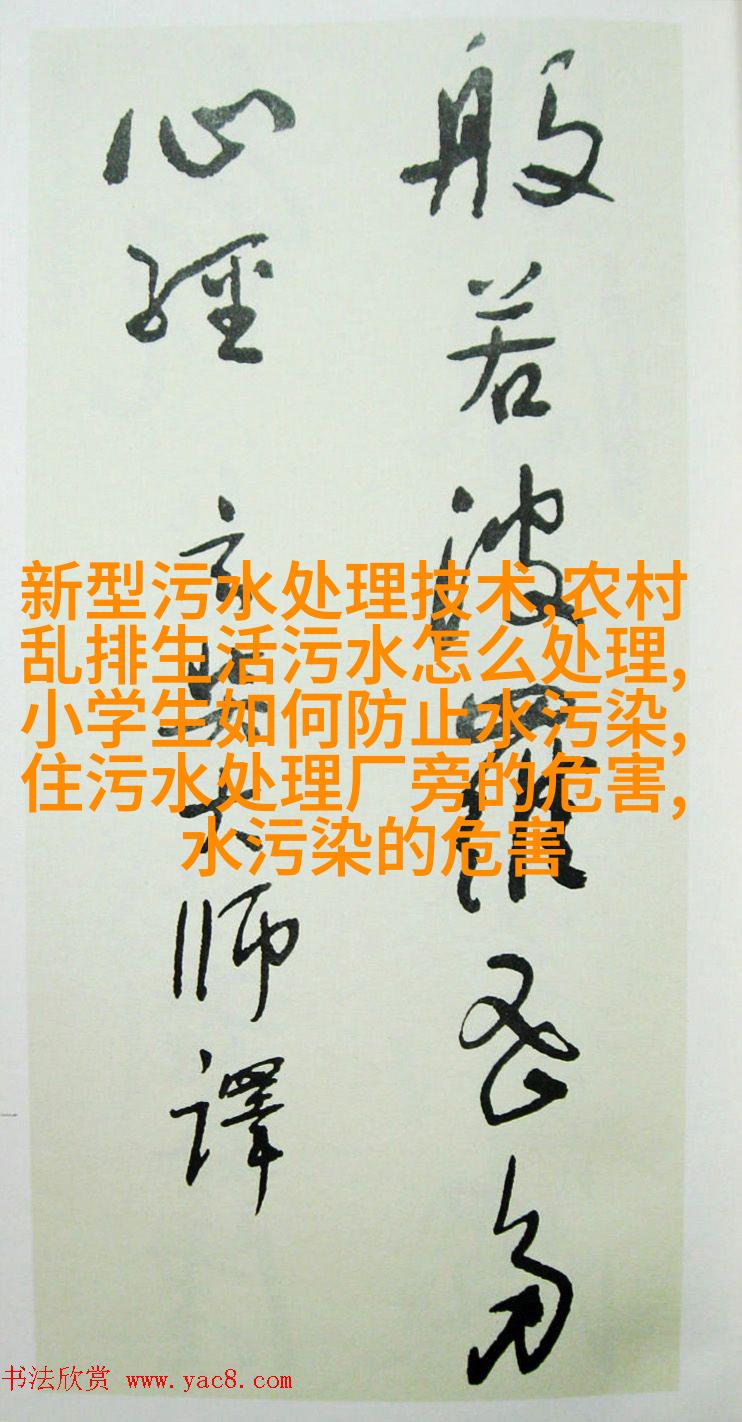 般若波羅密多
心經 玄奘大師譯
新型污水处理技术,农村
乱排生活污水怎么处理,
小学生如何防止水污染,
住污水处理厂旁的危害,
水污染的危害
书法欣赏 www.yac8.com